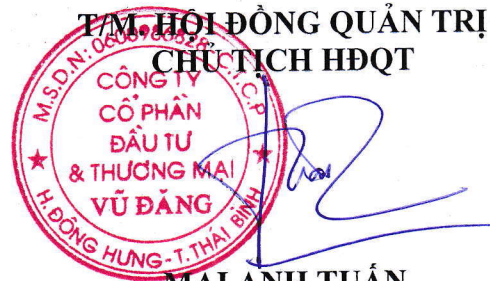 T/M. HỘI ĐỒNG QUẢN TRỊ
CHỦ TỊCH HĐQT
M.S.D.N: C.T.C.P
CÔNG TY
CỔ PHẦN
ĐẦU TƯ
& THƯƠNG MẠI
VŨ ĐĂNG
H.ĐÔNG HƯNG-T.THÁI BÌNH
MAI ANH TUẤN